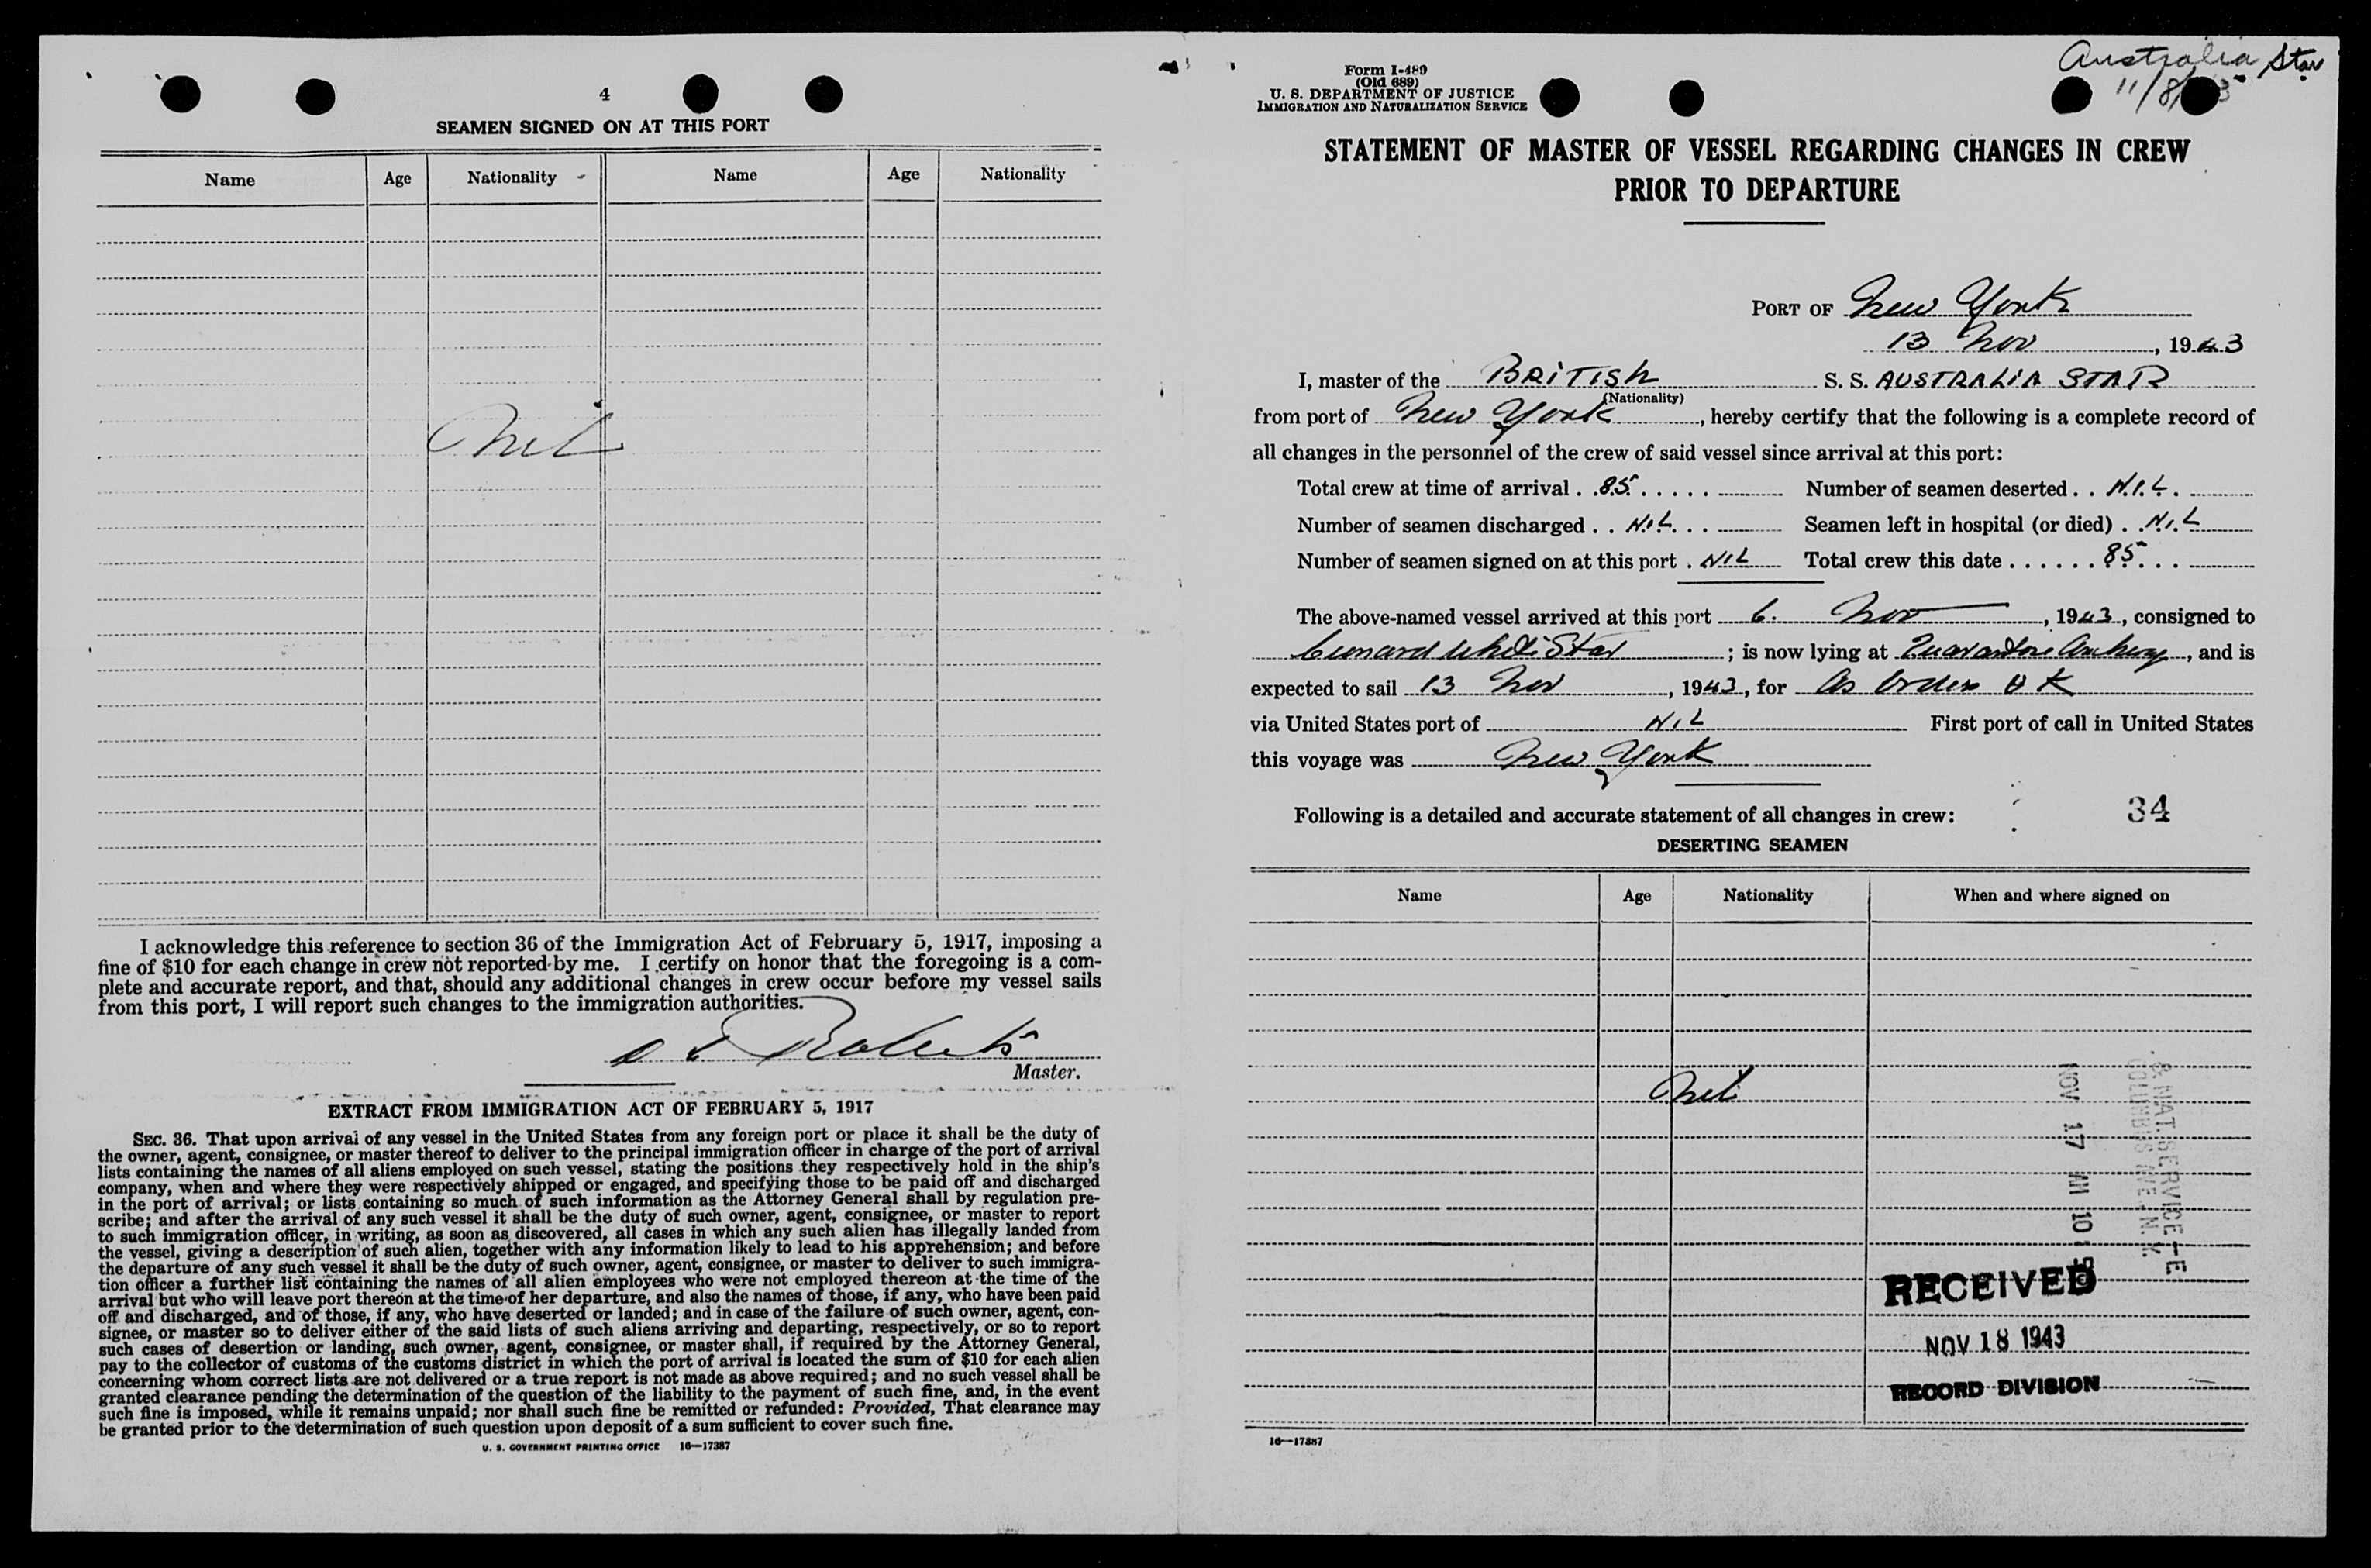 4
SEAMEN SIGNED ON AT THIS PORT
Name Age Nationality Name Age Nationality
Nil
I acknowledge this reference to section 36 of the Immigration Act of February 5, 1917, imposing a
fine of $10 for each change in crew not reported by me. I certify on honor that the foregoing is a com-
plete and accurate report, and that, should any additional changes in crew occur before my vessel sails
from this port, I will report such changes to the immigration authorities.
Roberts
Master.
EXTRACT FROM IMMIGRATION ACT OF FEBRUARY 5, 1917
SEC. 36. That upon arrival of any vessel in the United States from any foreign port or place it shall be the duty of
the owner, agent, consignee, or master thereof to deliver to the principal immigration officer in charge of the port of arrival
lists containing the names of all aliens employed on such vessel, stating the positions they respectively hold in the ship's
company, when and where they were respectively shipped or engaged, and specifying those to be paid off and discharged
in the port of arrival; or lists containing so much of such information as the Attorney General shall by regulation pre-
scribe; and after the arrival of any such vessel it shall be the duty of such owner, agent, consignee, or master to report
to such immigration officer, in writing, as soon as discovered, all cases in which any such alien has illegally landed from
the vessel, giving a description of such alien, together with any information likely to lead to his apprehension; and before
the departure of any such vessel it shall be the duty of such owner, agent, consignee, or master to deliver to such immigra-
tion officer a further list containing the names of all alien employees who were not employed thereon at the time of the
arrival but who will leave port thereon at the time of her departure, and also the names of those, if any, who have been paid
off and discharged, and of those, if any, who have deserted or landed; and in case of the failure of such owner, agent, con-
signee, or master so to deliver either of the said lists of such aliens arriving and departing, respectively, or so to report
such cases of desertion or landing, such owner, agent, consignee, or master shall, if required by the Attorney General,
pay to the collector of customs of the customs district in which the port of arrival is located the sum of $10 for each alien
concerning whom correct lists are not delivered or a true report is not made as above required; and no such vessel shall be
granted clearance pending the determination of the question of the liability to the payment of such fine, and, in the event
such fine is imposed, while it remains unpaid; nor shall such fine be remitted or refunded: Provided, That clearance may
be granted prior to the determination of such question upon deposit of a sum sufficient to cover such fine.
U. S. GOVERNMENT PRINTING OFFICE 16—17387
Australia Star
11/8/
Form I-489
(Old 689)
U. S. DEPARTMENT OF JUSTICE
IMMIGRATION AND NATURALIZATION SERVICE
STATEMENT OF MASTER OF VESSEL REGARDING CHANGES IN CREW
PRIOR TO DEPARTURE
PORT OF New York
13 Nov, 1943
I, master of the BRITISH S. S. AUSTRALIA STAR
(Nationality)
from port of New York, hereby certify that the following is a complete record of
all changes in the personnel of the crew of said vessel since arrival at this port:
Total crew at time of arrival . . 85 . . . . . Number of seamen deserted . . N.I.L.
Number of seamen discharged . . NIL . . . Seamen left in hospital (or died) . . NIL
Number of seamen signed on at this port . NIL Total crew this date . . . . . . 85 . . .
The above-named vessel arrived at this port 6. Nov, 1943, consigned to
Cunard White Star; is now lying at Quarantine , and is
expected to sail 13 Nov, 1943, for As Orders U K
via United States port of NIL First port of call in United States
this voyage was New York
Following is a detailed and accurate statement of all changes in crew: 34
DESERTING SEAMEN
Name Age Nationality When and where signed on
Nil
& NAT. SERVICE
COLUMBUS AVE. N.Y.
NOV 17 AM 10
RECEIVED
NOV 18 1943
RECORD DIVISION
16—17387